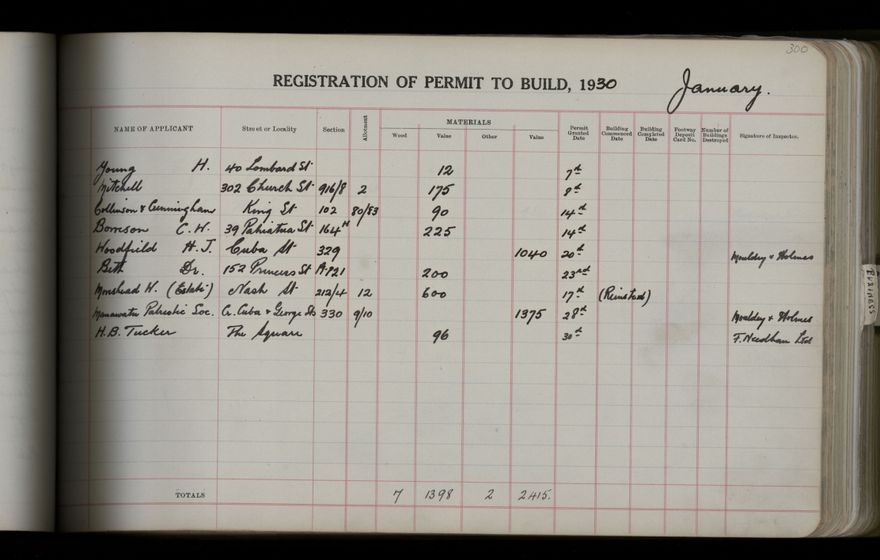 300
REGISTRATION OF PERMIT TO BUILD, 1930 January.
NAME OF APPLICANT Street or Locality Section Allotment MATERIALS Wood Value Other Value Permit Granted Date Building Commenced Date Building Completed Date Footway Deposit Card No. Number of Buildings Destroyed Signature of Inspector.
Young H. 40 Lombard St 12 7th
Mitchell 302 Church St 916/8 2 175 8th
Collinson & Cunninghame King St 102 80/83 90 14th
C. H. 39 Pahiatua St 164H 225 14th
Woodfield H. J. Cuba St 329 1040 20th Mouldey & Holmes
Bett Dr. 152 Princess St A921 200 23rd
W. (Estate) Nash St 212/4 12 600 17th (Reinstate)
Manawatu Patriotic Soc. Cr. Cuba & George Sts 330 9/10 1375 28th Mouldey & Holmes
H. B. Tucker The Square 96 30th F. Needham Ltd
TOTALS 7 1398 2 2415.
BUSINESS